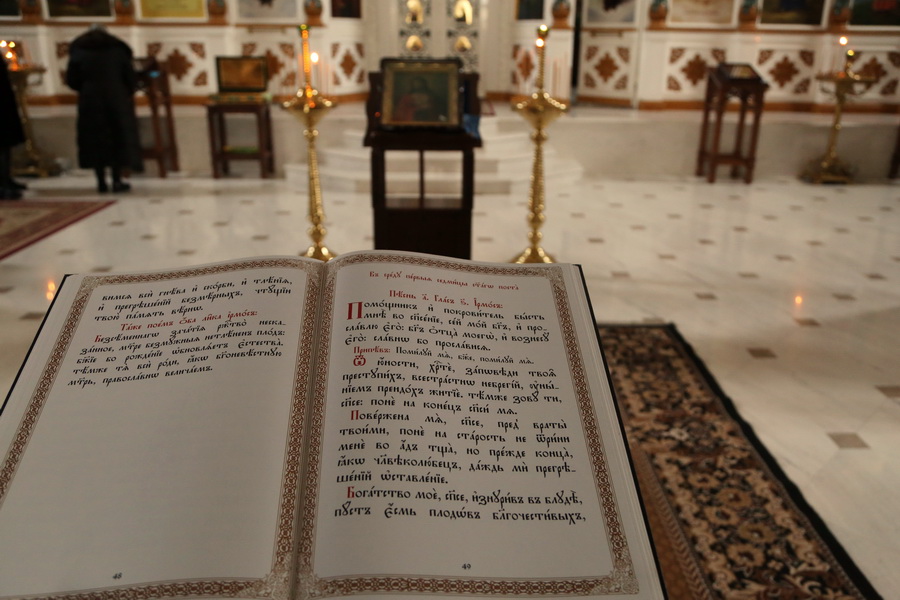 вимся вси гнѣва и скорби, и тлѣнїѧ,
и прегрѣшенїй безмѣрныхъ, чтꙋщїи
твою̀ па́мѧть вѣ́рнѡ.
Та́же пое́мъ ѻ҆ба ли́ка і҆рмо́съ:
Безсѣ́меннагѡ зача́тїѧ ржⷭ҇тво̀ неска-
за́нное, мт҃ре безмꙋ́жныѧ нетлѣ́ненъ пло́дъ:
бж҃їе бо рожде́нїе ѡ҆бновлѧ́етъ є҆стєства̀.
тѣ́мже тѧ̀ всѝ ро́ди, ꙗ҆́кѡ бг҃оневѣ́стнꙋю
мт҃рь, правосла́внѡ велича́емъ.
48
Въ сре́дꙋ пе́рвыѧ седми́цы ст҃а́гѡ поста̀
Пѣ́снь а҃. Гла́съ ѕ҃. І҆рмо́съ:
Помо́щникъ и҆ покрови́тель бы́сть
мнѣ̀ во сп҃се́нїе, се́й мо́й бг҃ъ, и҆ про-
сла́влю є҆го̀: бг҃ъ ѻ҆тца̀ моегѡ̀, и҆ вознесꙋ̀
є҆го̀: сла́внѡ бо просла́висѧ.
Припѣ́въ: Поми́лꙋй мѧ̀, бж҃е, поми́лꙋй мѧ̀.
Ѿ ю҆́ности, хрⷭ҇тѐ, за́повѣди твоѧ̑
престꙋпи́хъ, всестра́стнѡ небрегі́й, ᲂу҆ны́-
нїемъ преидо́хъ житїѐ. тѣ́мже зовꙋ́ ти,
сп҃се: понѐ на коне́цъ сп҃си́ мѧ.
Пове́ржена мѧ̀, сп҃се, пред̾ враты̀
твои́ми, понѐ на ста́рость не ѿри́ни
менѐ во а҆́дъ тща̀, но пре́жде конца̀,
ꙗ҆́кѡ чл҃вѣколю́бецъ, да́ждь мѝ прегрѣ-
ше́нїй ѡ҆ставле́нїе.
Бога́тство моѐ, сп҃се, и҆знꙋри́въ въ блꙋ́дѣ,
пꙋ́стъ є҆́смь плодѡ́въ бл҃гочести́выхъ,
49